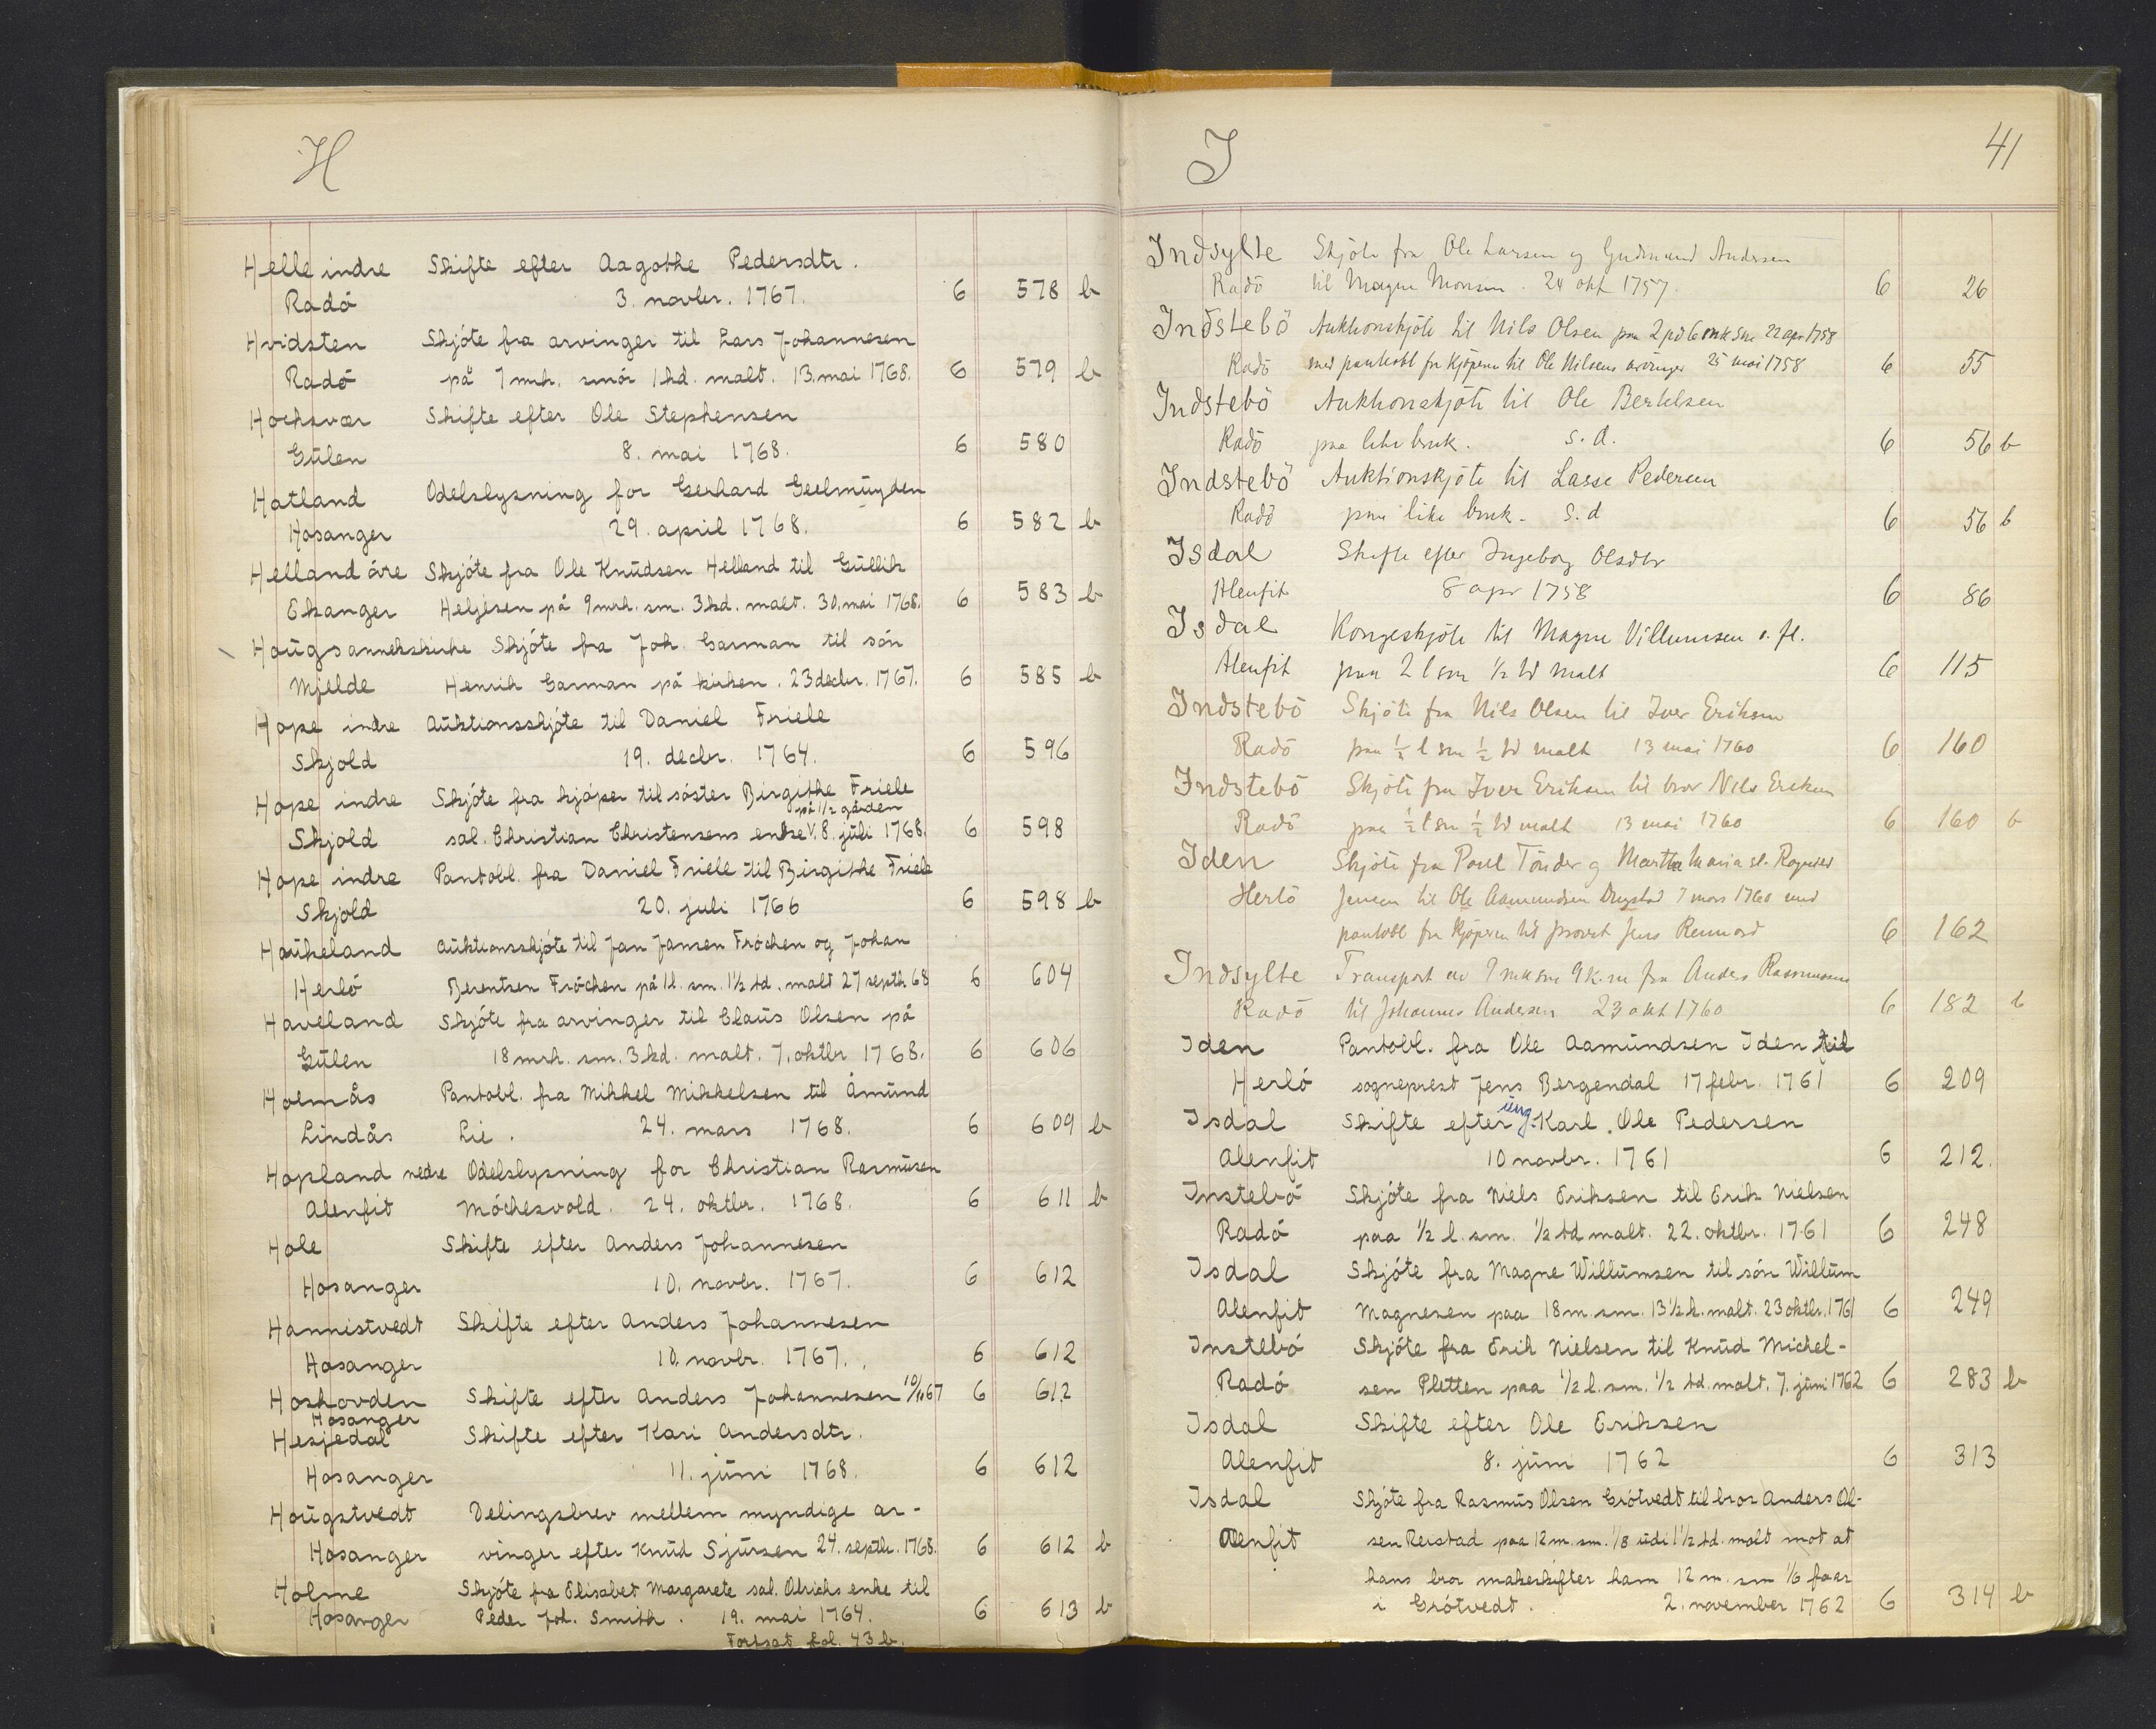 H
Helle indre Skifte efter Aagothe Pedersdtr.
Radö 3. novbr. 1767. 6 578 b
Hvidsten Skjöte fra arvinger til Lars Johannesen
Radö på 7 mrk. smör 1 kd. malt. 13. mai 1768. 6 579 b
Hocksvær Skifte efter Ole Stephensen
Gulen 8. mai 1768. 6 580
Hatland Odelslysning for Gerhard Geelmuyden
Hosanger 29. april 1768. 6 582 b
Helland övre Skjöte fra Ole Knudsen Helland til Gullik
Ekanger Heljesen på 9 mrk. sm. 3 kd. malt. 30. mai 1768. 6 583 b
Hougs annekskirke Skjöte fra Joh. Garman til sön
Mjelde Henrik Garman på kirken. 23 decbr. 1767. 6 585 b
Hope indre Auktionsskjöte til Daniel Friele
Skjold 19. decbr. 1764. 6 596
Hope indre Skjöte fra kjöper til söster Birgithe Friele
på 1/2 gården
Skjold sal. Christian Christensens enke v. 8. juli 1768. 6 598
Hope indre Pantobl. fra Daniel Friele til Birgithe Friele
Skjold 20. juli 1766 6 598 b
Haukeland Auktionsskjöte til Jan Jansen Fröchen og Johan
Herlö Berentsen Fröchen på 1 l. sm. 1 1/2 td. malt 27 septb. 68 6 604
Haveland Skjöte fra arvinger til Claus Olsen på
Gulen 18 mrk. sm. 3 kd. malt. 7. oktbr 1768. 6 606
Holmås Pantobl. fra Mikkel Mikkelsen til Åmund
Lindås Lie. 24. mars 1768. 6 609 b
Hopland nedre Odelslysning for Christian Rasmusen
Alenfit Möchesvold. 24. oktbr. 1768. 6 611 b
Hole Skifte efter Anders Johannesen
Hosanger 10. novbr. 1767. 6 612
Hannistvedt Skifte efter Anders Johannesen
Hosanger 10. novbr. 1767. 6 612
Hoshovden Skifte efter Anders Johannesen 10/11 67 6 612
Hosanger
Hesjedal Skifte efter Kari Andersdtr.
Hosanger 11. juni 1768. 6 612
Hougstvedt Delingsbrev mellem myndige ar-
Hosanger vinger efter Knud Sjursen 24. septbr. 1768. 6 612 b
Holme Skjöte fra Elisabet Margarete sal. Olrichs enke til
Hosanger Peder Joh. Smith. 19. mai 1764. 6 613 b
Fortsat fol. 43 b.
I 41
Indsylte Skjöte fra Ole Larsen og Gudmund Andersen
Radö til Magne Monsen. 24 okt 1757. 6 26
Indstebö Auktionskjöte til Nils Olsen paa 2 pd 6 mk Sm 22 apr 1758
Radö med pantobl fra kjöperen til Ole Nilsens arvinger 25 mai 1758 6 55
Indstebö Auktionskjöte til Ole Bertelsen
Radö paa like bruk. S. d. 6 56 b
Indstebö Auktionskjöte til Lasse Pedersen
Radö paa like bruk. S. d 6 56 b
Isdal Skifte efter Ingeborg Olsdtr
Alenfit 8 apr 1758 6 86
Isdal Kongeskjöte til Magne Villumsen o. fl.
Alenfit paa 2 l sm 1/2 td malt 6 115
Indstebö Skjöte fra Nils Olsen til Iver Eriksen
Radö paa 1/2 l sm 1/2 td malt 13 mai 1760 6 160
Indstebö Skjöte fra Iver Eriksen til bror Nils Eriksen
Radö paa 1/2 l sm 1/2 td malt 13 mai 1760 6 160 b
Iden Skjöte fra Poul Tönder og Martha Maria sl.
Herlö Jensen til Ole Aamundsen 7 mars 1760 med
pantobl fra kjöperen til provst Jens 6 162
Indsylte Transport av 9 mk sm 9 k. m fra Anders Rasmussen
Radö til Johannes Andersen 23 okt 1760 6 182 b
Iden Pantobl. fra Ole Aamundsen Iden til
Herlö sogneprest Jens Bergendal 17 febr. 1761 6 209
Isdal Skifte efter ung. Karl. Ole Pedersen
Alenfit 10 novbr. 1761 6 212.
Instebö Skjöte fra Niels Eriksen til Erik Nielsen
Radö paa 1/2 l. sm. 1/2 td malt. 22. oktbr. 1761 6 248
Isdal Skjöte fra Magne Willumsen til sön Willum
Alenfit Magnesen paa 18 m. sm. 13 1/2 k. malt. 23 oktbr. 1761 6 249
Instebö Skjöte fra Erik Nielsen til Knud Michel-
Radö sen Pletten paa 1/2 l. sm. 1/2 td. malt. 7. juni 1762 6 283 b
Isdal Skifte efter Ole Eriksen
Alenfit 8. juni 1762 6 313
Isdal Skjöte fra Rasmus Olsen Grötvedt til bror Anders Ol-
Alenfit sen Reistad paa 12 m. sm. 1/8 udi 1 1/2 td. malt mot at
hans bror makeskifter ham 12 m. sm 1/6 faar
i Grötvedt. 2. november 1762 6 314 b